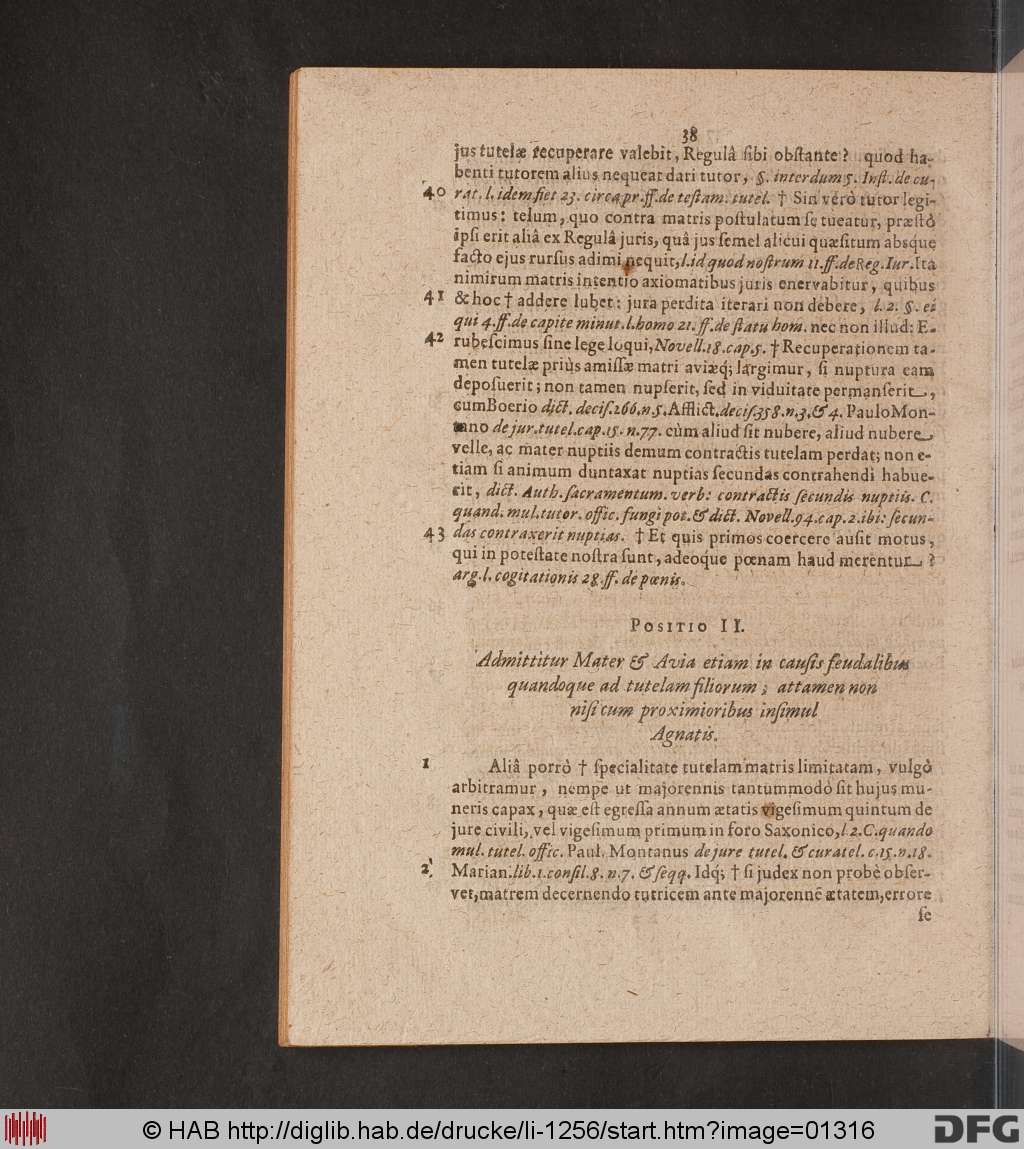 38
jus tutelæ recuperare valebit, Regulâ sibi obstante? quod ha-
benti tutorem alius nequeat dari tutor, §. interdum 5. Inst. de cu-
40 rat. l. idem fiet 23. circa pr. ff. de testam. tutel. † Sin verò tutor legi-
timus: telum, quo contra matris postulatum se tueatur, præstò
ipsi erit aliâ ex Regulâ juris, quâ jus semel alicui quæsitum absque
facto ejus rursus adimi nequit, l. id quod nostrum 11. ff. de Reg. Iur. Ita
nimirum matris intentio axiomatibus juris enervabitur, quibus
41 & hoc † addere lubet: jura perdita iterari non debere, l. 2. §. ei
qui 4. ff. de capite minut. l. homo 21. ff. de statu hom. nec non illud: E-
42 rubescimus sine lege loqui, Novell. 18. cap. 5. † Recuperationem ta-
men tutelæ priùs amissæ matri aviæq; largimur, si nuptura eam
deposuerit; non tamen nupserit, sed in viduitate permanserit,
cum Boerio dict. decis. 166. n. 5. Afflict. decis. 358. n. 3. & 4. Paulo Mon-
tano de jur. tutel. cap. 15. n. 77. cùm aliud sit nubere, aliud nubere
velle, ac mater nuptiis demum contractis tutelam perdat; non e-
tiam si animum duntaxat nuptias secundas contrahendi habue-
rit, dict. Auth. sacramentum. verb: contractis secundis nuptiis. C.
quand. mul. tutor. offic. fungi pot. & dict. Novell. 94. cap. 2. ibi: secun-
43 das contraxerit nuptias. † Et quis primos coercere ausit motus,
qui in potestate nostra sunt, adeoque pœnam haud merentur?
arg. l. cogitationis 28. ff. de pœnis.
POSITIO II.
Admittitur Mater & Avia etiam in causis feudalibus
quandoque ad tutelam filiorum; attamen non
nisi cum proximioribus insimul
Agnatis.
1 Aliâ porrò † specialitate tutelam matris limitatam, vulgò
arbitramur, nempe ut majorennis tantummodò sit hujus mu-
neris capax, quæ est egressa annum ætatis vigesimum quintum de
jure civili, vel vigesimum primum in foro Saxonico, l. 2. C. quando
mul. tutel. offic. Paul. Montanus de jure tutel. & curatel. c. 15. n. 18.
2. Marian. lib. 1. consil. 8. n. 7. & seqq. Idq; † si judex non probè obser-
vet, matrem decernendo tutricem ante majorennē ætatem, errore
se
© HAB http://diglib.hab.de/drucke/li-1256/start.htm?image=01316
DFG